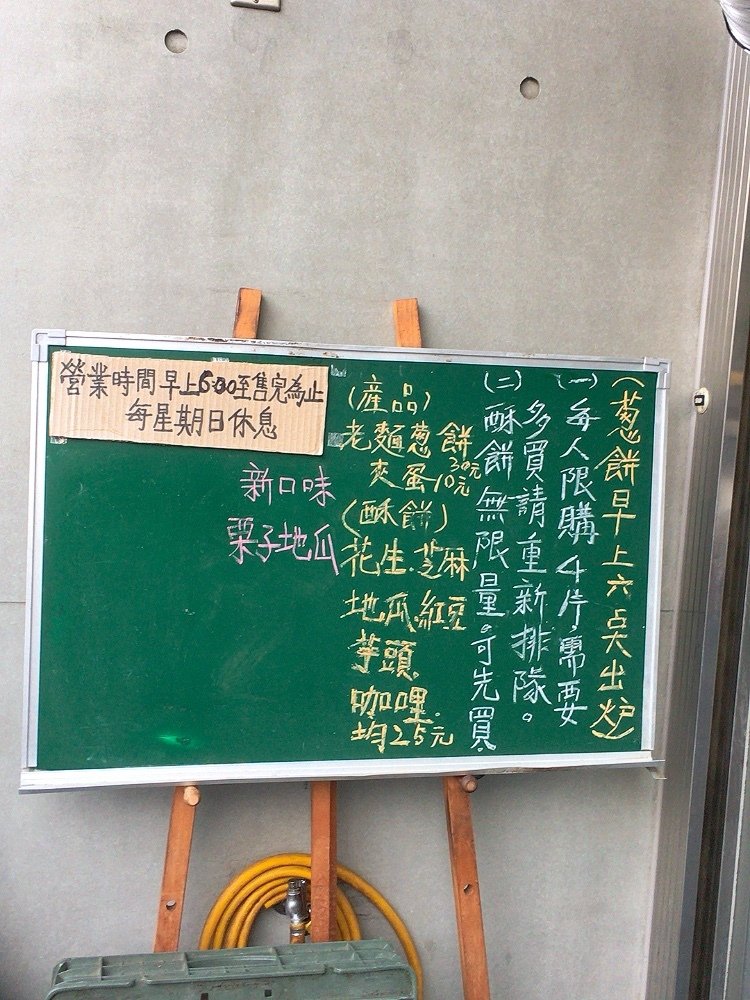 營業時間早上6:00至售完為止
每星期日休息
(葱餅早上六点出炉)
(一)每人限購4片,需要
多買請重新排隊。
(二)酥餅無限量。可先買.
(産品)
老麵葱餅30元
夾蛋10元
(酥餅)
花生.芝麻
地瓜.紅豆
芋頭.
咖哩.
均25元
新口味
栗子地瓜